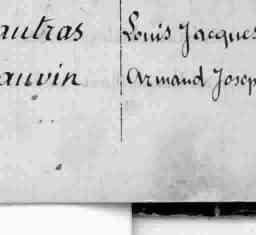 autras Louis Jacques
auvin Armand Josep